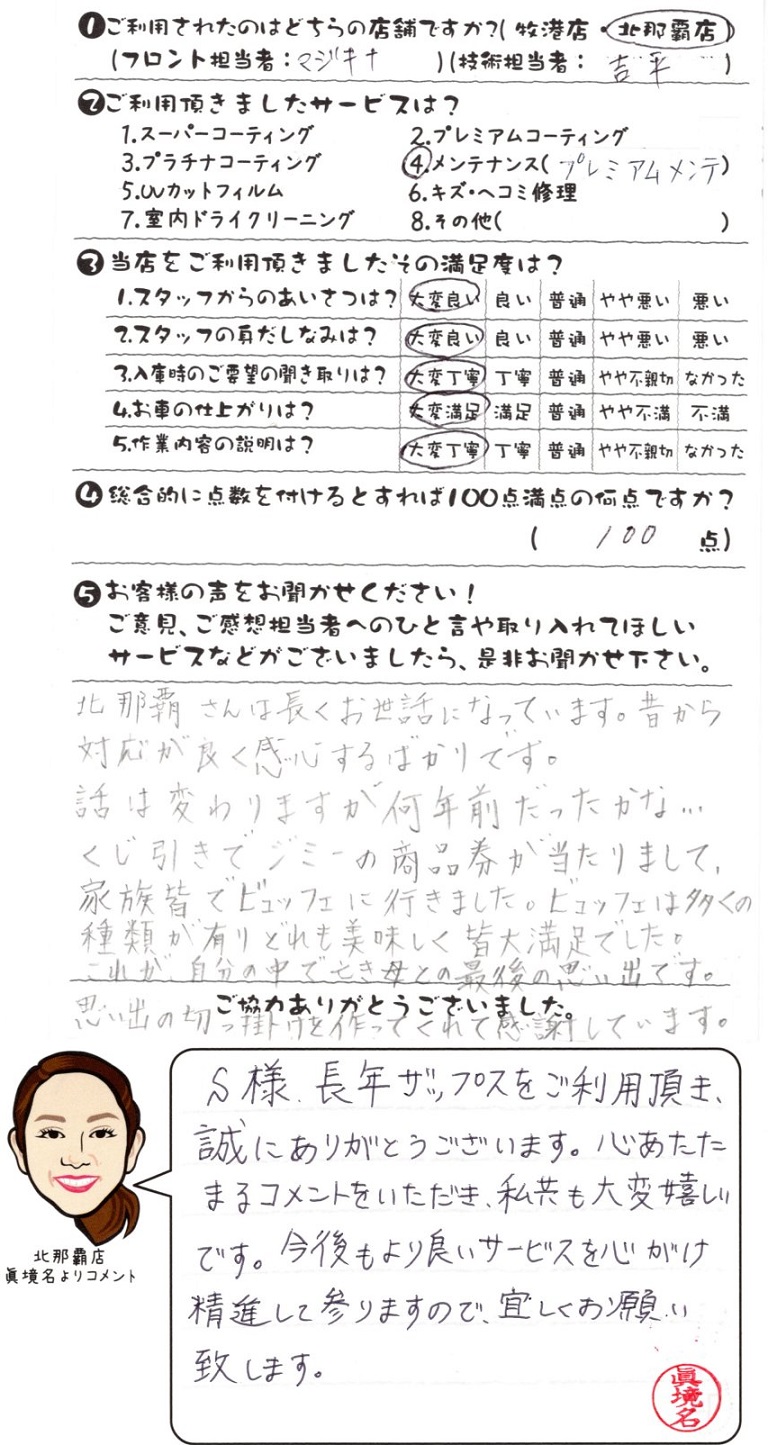 ❶ご利用されたのはどちらの店舗ですか?(牧港店・北那覇店)
(フロント担当者：マジキナ )(技術担当者： 吉平 )
❷ご利用頂きましたサービスは?
1.スーパーコーティング 2.プレミアムコーティング
3.プラチナコーティング 4.メンテナンス(プレミアムメンテ)
5.UVカットフィルム 6.キズ・ヘコミ修理
7.室内ドライクリーニング 8.その他( )
❸当店をご利用頂きましたその満足度は?
1.スタッフからのあいさつは? 大変良い 良い 普通 やや悪い 悪い
2.スタッフの身だしなみは? 大変良い 良い 普通 やや悪い 悪い
3.入庫時のご要望の聞き取りは? 大変丁寧 丁寧 普通 やや不親切 なかった
4.お車の仕上がりは? 大変満足 満足 普通 やや不満 不満
5.作業内容の説明は? 大変丁寧 丁寧 普通 やや不親切 なかった
❹総合的に点数を付けるとすれば100点満点の何点ですか?
( 100 点)
❺お客様の声をお聞かせください!
ご意見、ご感想担当者へのひと言や取り入れてほしい
サービスなどがございましたら、是非お聞かせ下さい。
北那覇さんは長くお世話になっています。昔から
対応が良く感心するばかりです。
話は変わりますが何年前だったかな…
くじ引きでジミーの商品券が当たりまして、
家族皆でビュッフェに行きました。ビュッフェは多くの
種類が有りどれも美味しく皆大満足でした。
これが、自分の中で亡き母との最後の思い出です。
ご協力ありがとうございました。
思い出の切っ掛けを作ってくれて感謝しています。
S様、長年ザップスをご利用頂き、
誠にありがとうございます。心あたた
まるコメントをいただき、私共も大変嬉しい
です。今後もより良いサービスを心がけ
精進して参りますので、宜しくお願い
致します。
眞境名
北那覇店
眞境名よりコメント